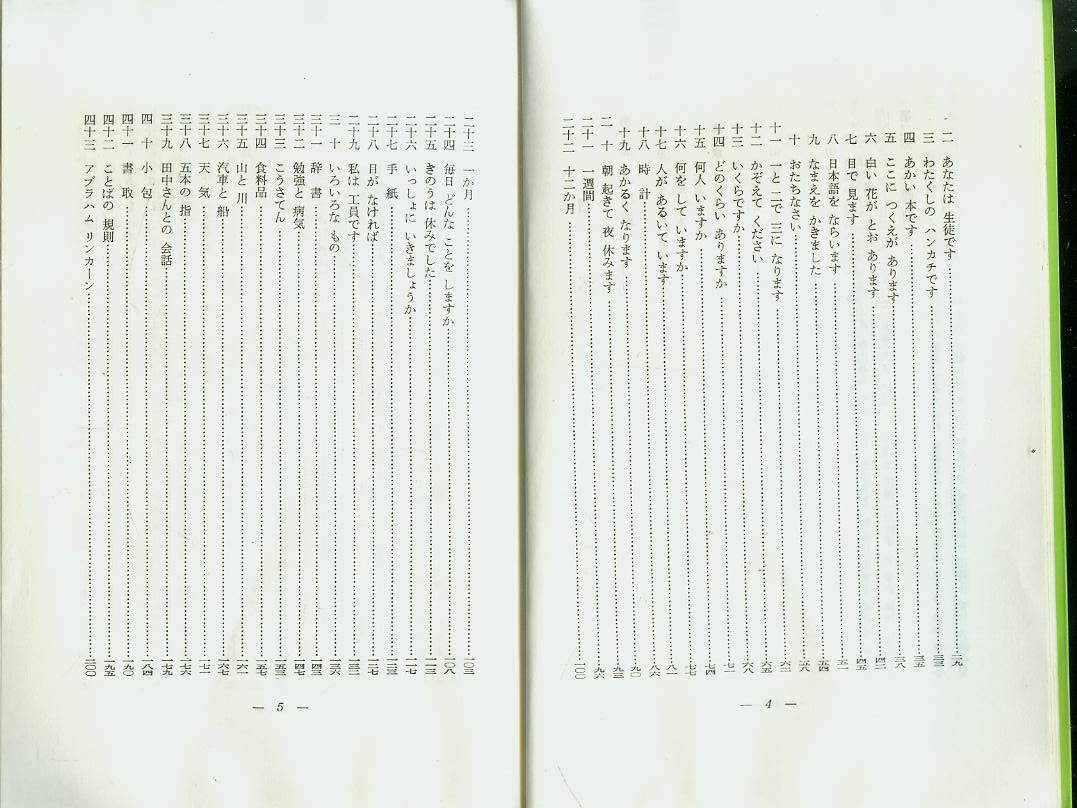 二 あなたは 生徒です……二九
三 わたくしの ハンカチです……三三
四 あかい 本です……三五
五 ここに つくえが あります……三八
六 白い 花が とお あります……四二
七 目で 見ます……四五
八 日本語を ならいます……五一
九 なまえを かきました……五四
十 おたちなさい……五八
十一 一と 二で 三に なります……六二
十二 かぞえて ください……六五
十三 いくらですか……六八
十四 どのくらい ありますか……七一
十五 何人 いますか……七四
十六 何を して いますか……七七
十七 人が あるいて います……八一
十八 時計……八六
十九 あかるく なります……九〇
二十 朝 起きて 夜 休みます……九三
二十一 一週間……九六
二十二 十二か月……一〇〇
— 4 —
二十三 一か月……一〇三
二十四 毎日 どんな ことを しますか……一〇八
二十五 きのうは 休みでした……一一三
二十六 いっしょに いきましょうか……一一七
二十七 手紙……一二三
二十八 目が なければ……一二七
二十九 私は 工員です……一三二
三十 いろいろな もの……一三六
三十一 辞書……一四三
三十二 勉強と 病気……一四七
三十三 こうさてん……一五三
三十四 食料品……一五七
三十五 山と 川……一六一
三十六 汽車と 船……一六七
三十七 天気……一七一
三十八 五本の 指……一七六
三十九 田中さんとの 会話……一七九
四十 小包……一八四
四十一 書取……一九〇
四十二 ことばの 規則……一九五
四十三 アブラハム リンカーン……二〇〇
— 5 —